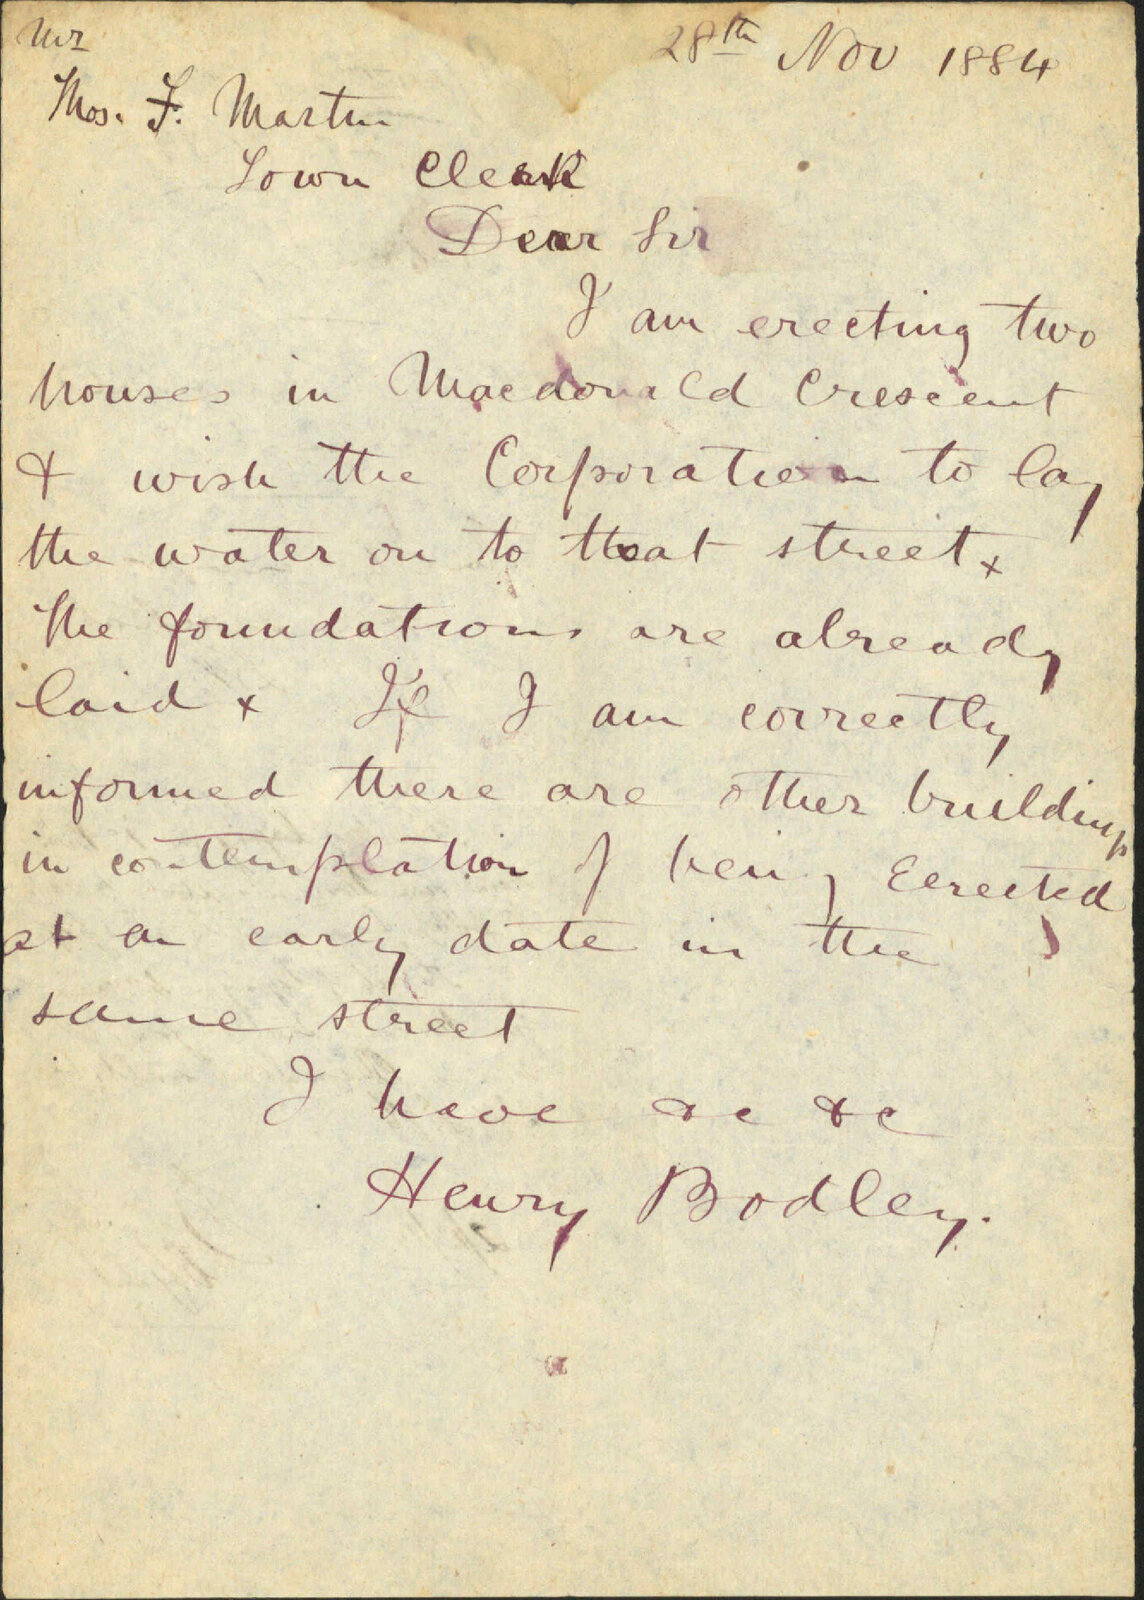 28th Nov 1884
Mr
Thos. F. Martin
Town Clerk
Dear Sir
I am erecting two
houses in Macdonald Crescent
& wish the Corporation to lay
the water on to that street x
The foundations are already
laid x If I am correctly
informed there are other buildings
in contemplation of being Eerected
at an early date in the
same street
I have &c &c
Henry Bodley.